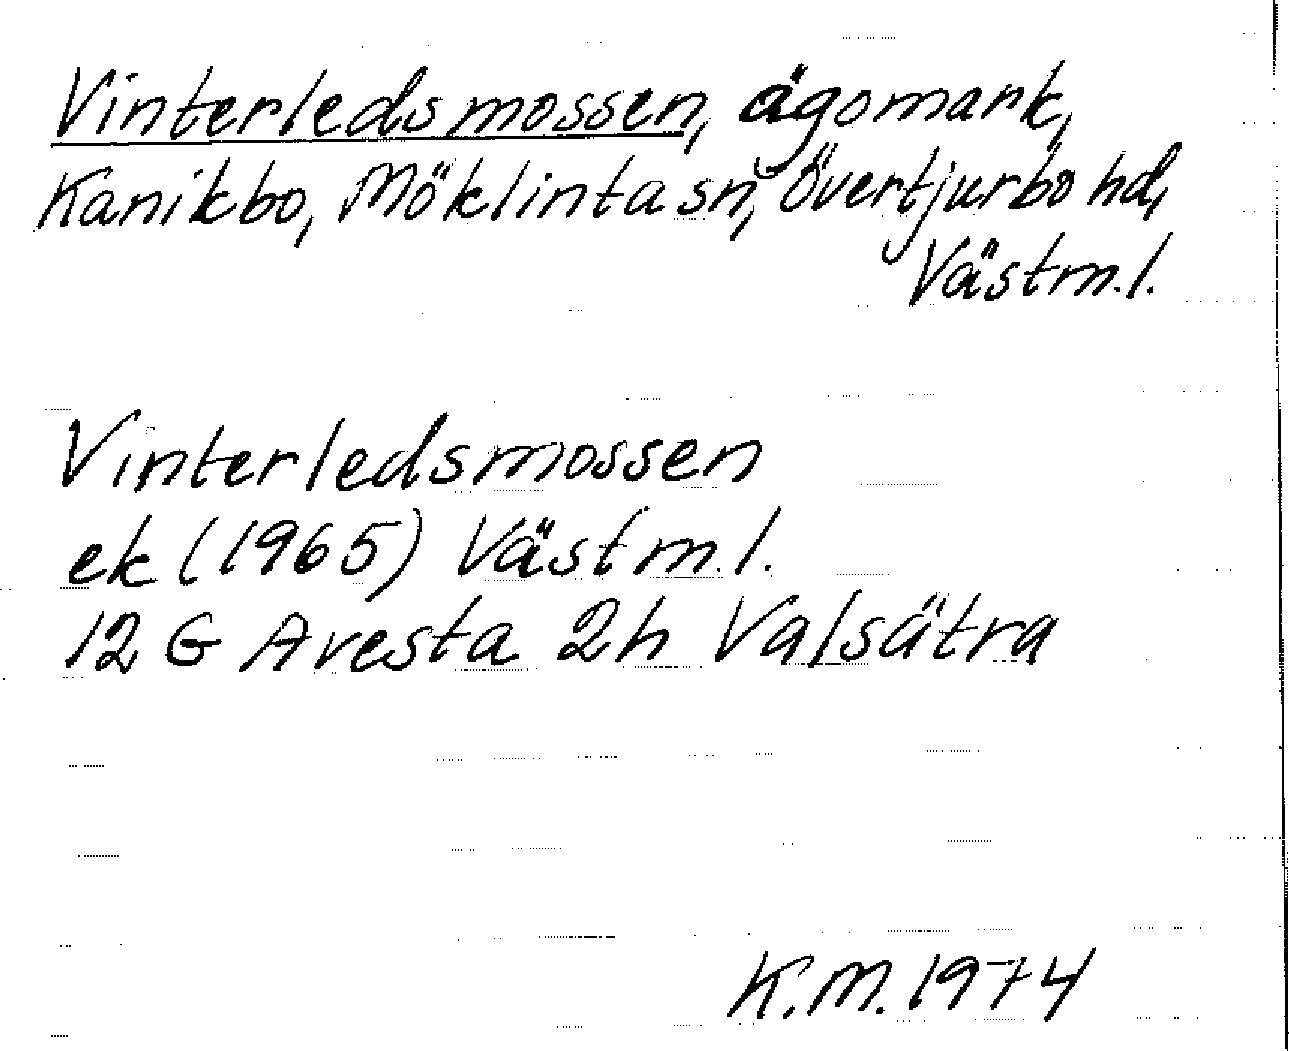 Vinterledsmossen, ägomark,
Kanikbo, Möklinta sn, Övertjurbo hd,
Västm.l.
Vinterledsmossen
ek (1965) Västm.l.
12 G Avesta 2h Valsätra
K.M. 1974